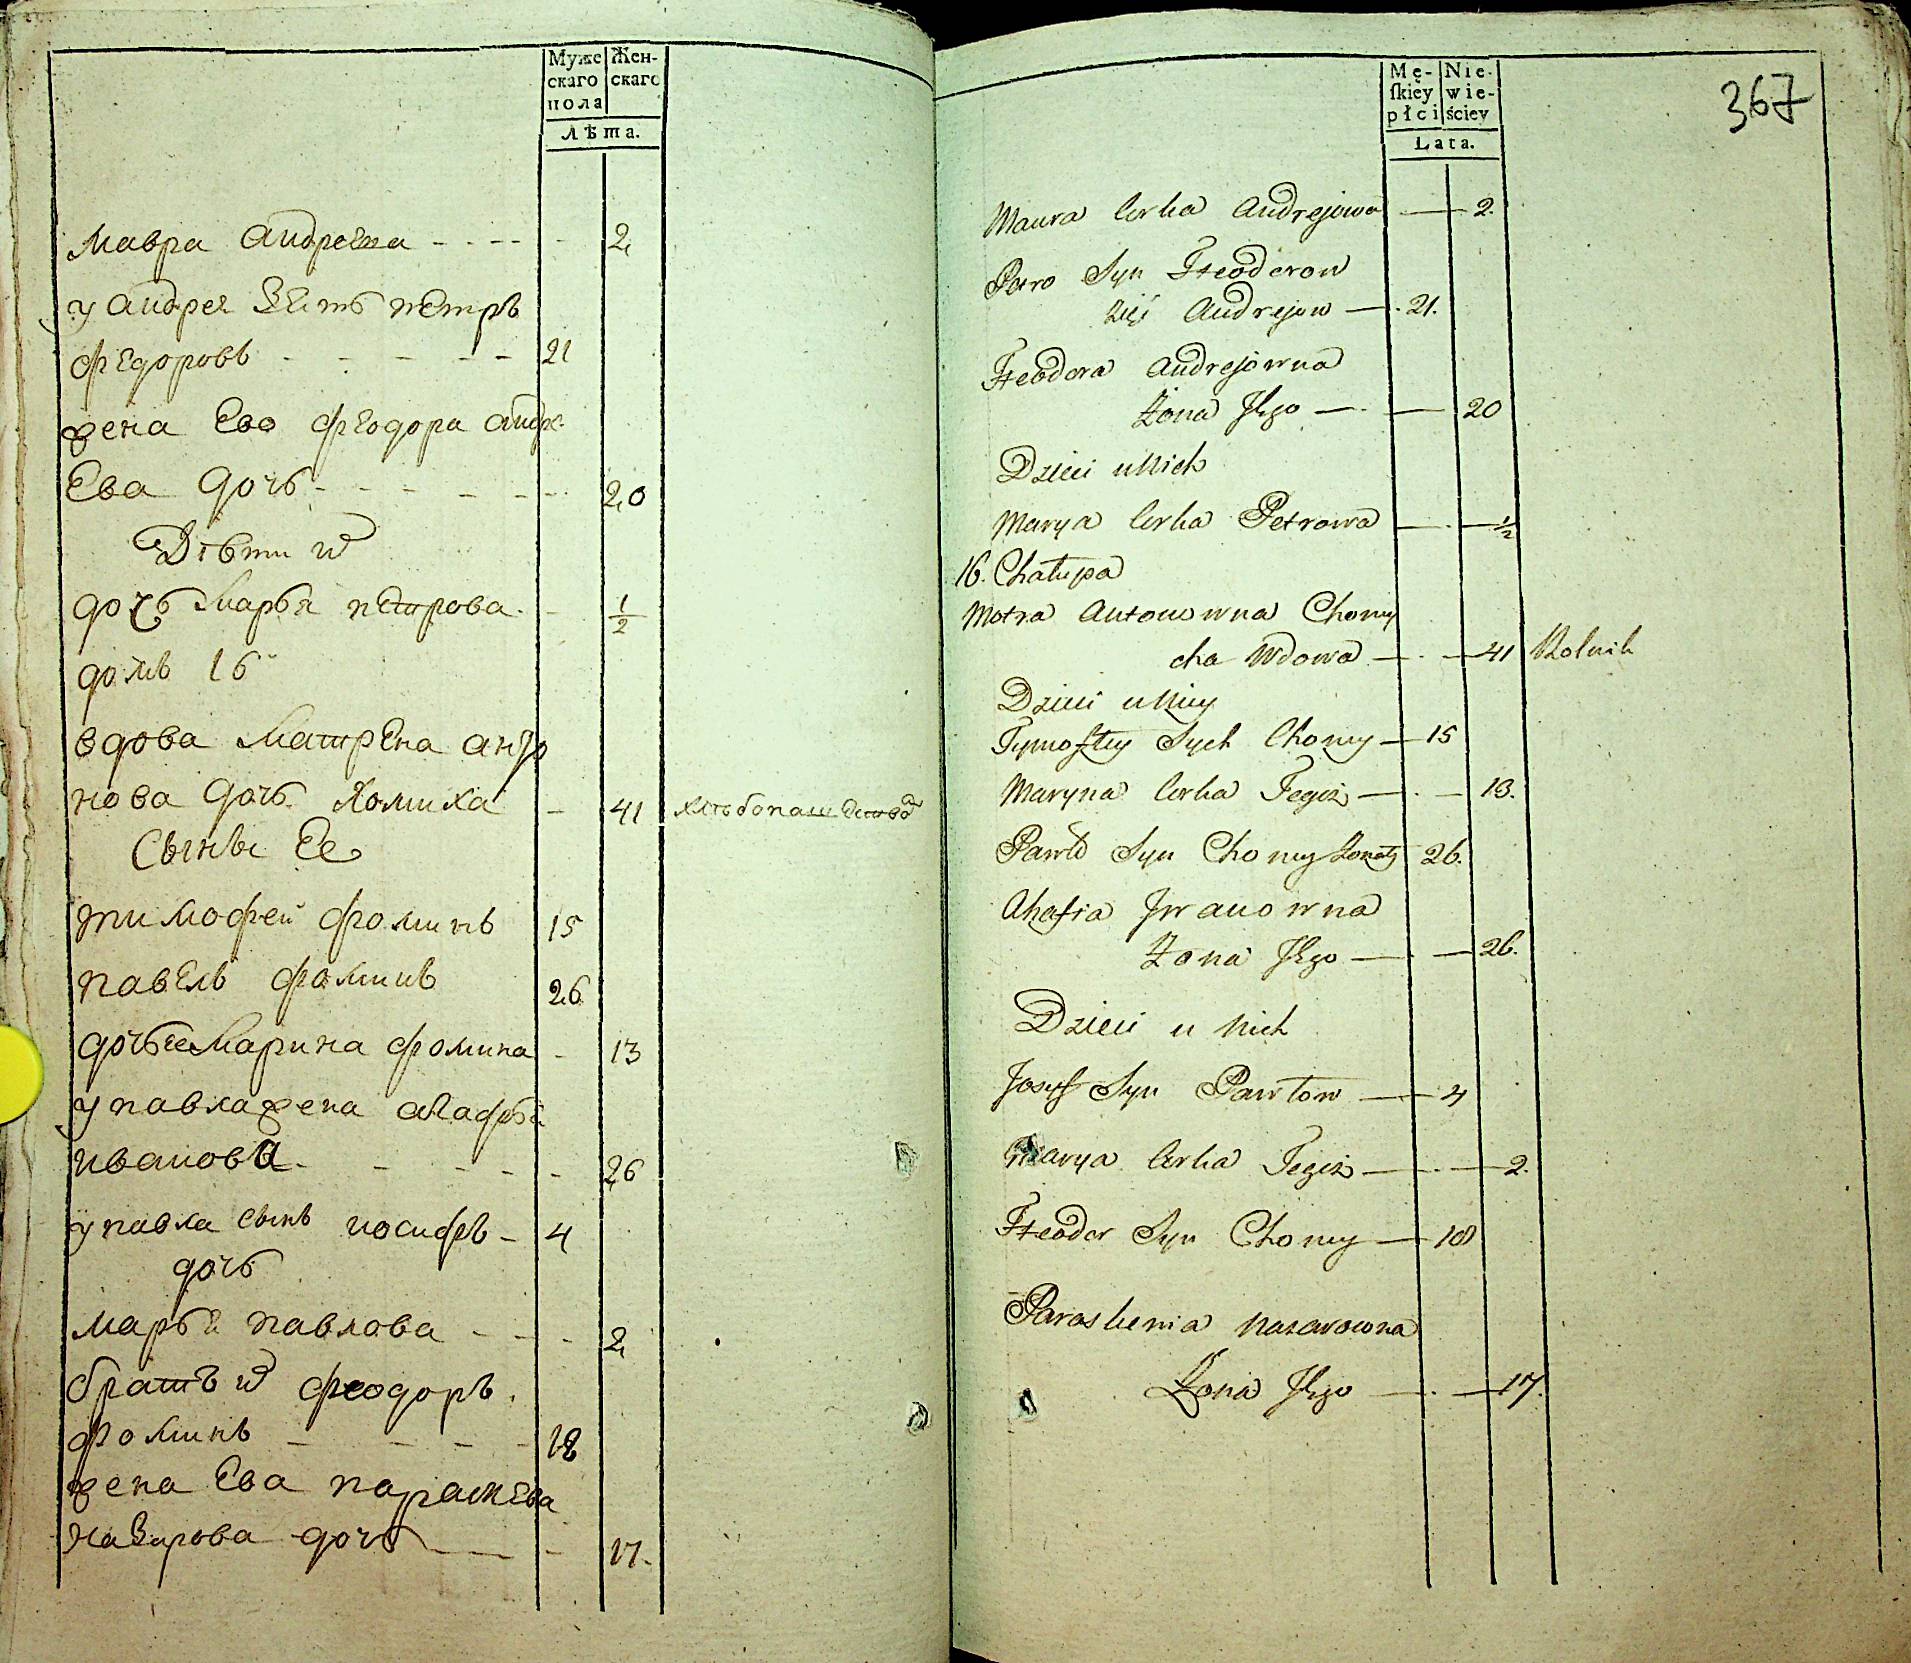 Муже
скаго
пола
Жен-
скаго
лѣта.
мавра андреева - - - - - 2
у андрея зять петръ
федоровъ - - - - - 21
жена Ево феодора андре-
Ева дочь - - - - - 20
Дѣти их
дочь Марья петрова - 1/2
домъ 16
вдова Матрена анто
нова дочь Хомиха - 41 хлѣбопашество
Сыны Ее
тимофей фоминъ 15
павелъ фоминъ 26
дочь ее Марина фомина - 13
у павла жена агафья
иванова - - - - - 26
у павла сынъ иосифъ - 4
дочь
марья павлова - - - 2
братъ их феодоръ
фоминъ - - - - 18
жена Ево параскева
назарова дочь - - - 17.
367
Mę-
ſkiey
płci
Nie-
wie-
ściey
Lata.
Maura Corka Andrejowa — 2.
Petro Syn Fteodorow
zięć Andrejow — 21.
Fteodora Andrejowna
Żona Jego — — 20
Dzieci u Nich
Marya Corka Petrowa — — 1/2
16. Chałupa
Motra Antonowna Chomi
cha Wdowa — — 41 Rolnik
Dzieci u Niey
Tymoftey Sych Chomy — 15
Maryna Corka Tegoż — — 13.
Pawło Syn Chomy Żonaty 26.
Ahafia Jwanowna
Żona Jego — — 26.
Dzieci u Nich
Jozef Syn Pawłow — 4
Marya Corka Tegoż — — 2.
Fteodor Syn Chomy — 18
Paraskewia Nazarowna
Żona Jego — — 17.